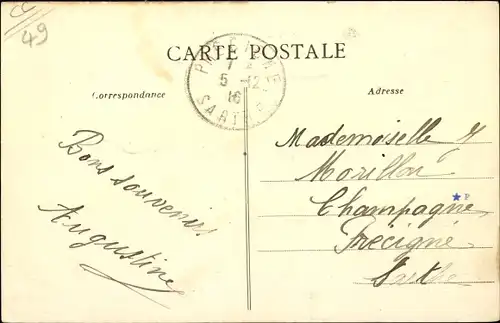 49
CARTE POSTALE
Correspondance
Adresse
5 -12
16
Bons souvenirs
Augustine
Mademoiselle
Morillon
Champagne
Précigné
Sarthe